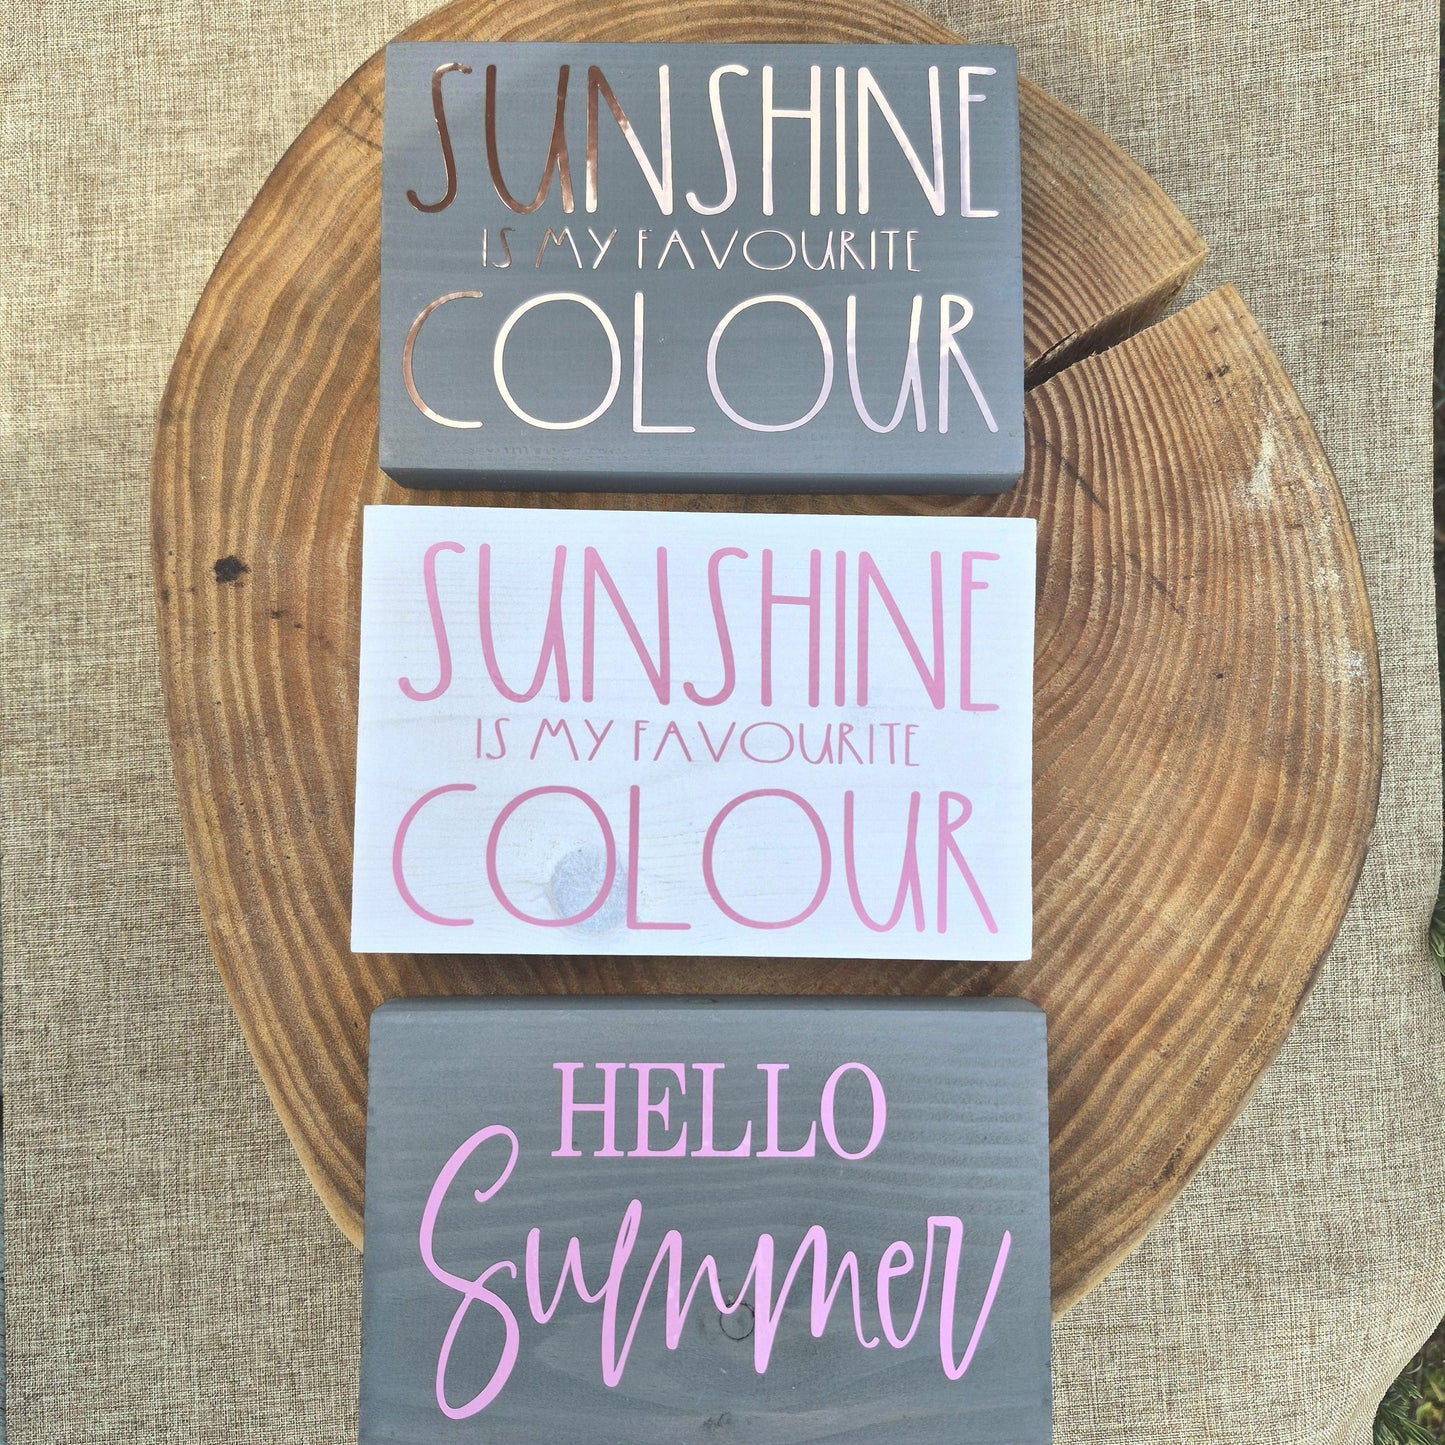 SUNSHINE
IS MY FAVOURITE
COLOUR
SUNSHINE
IS MY FAVOURITE
COLOUR
HELLO
Summer